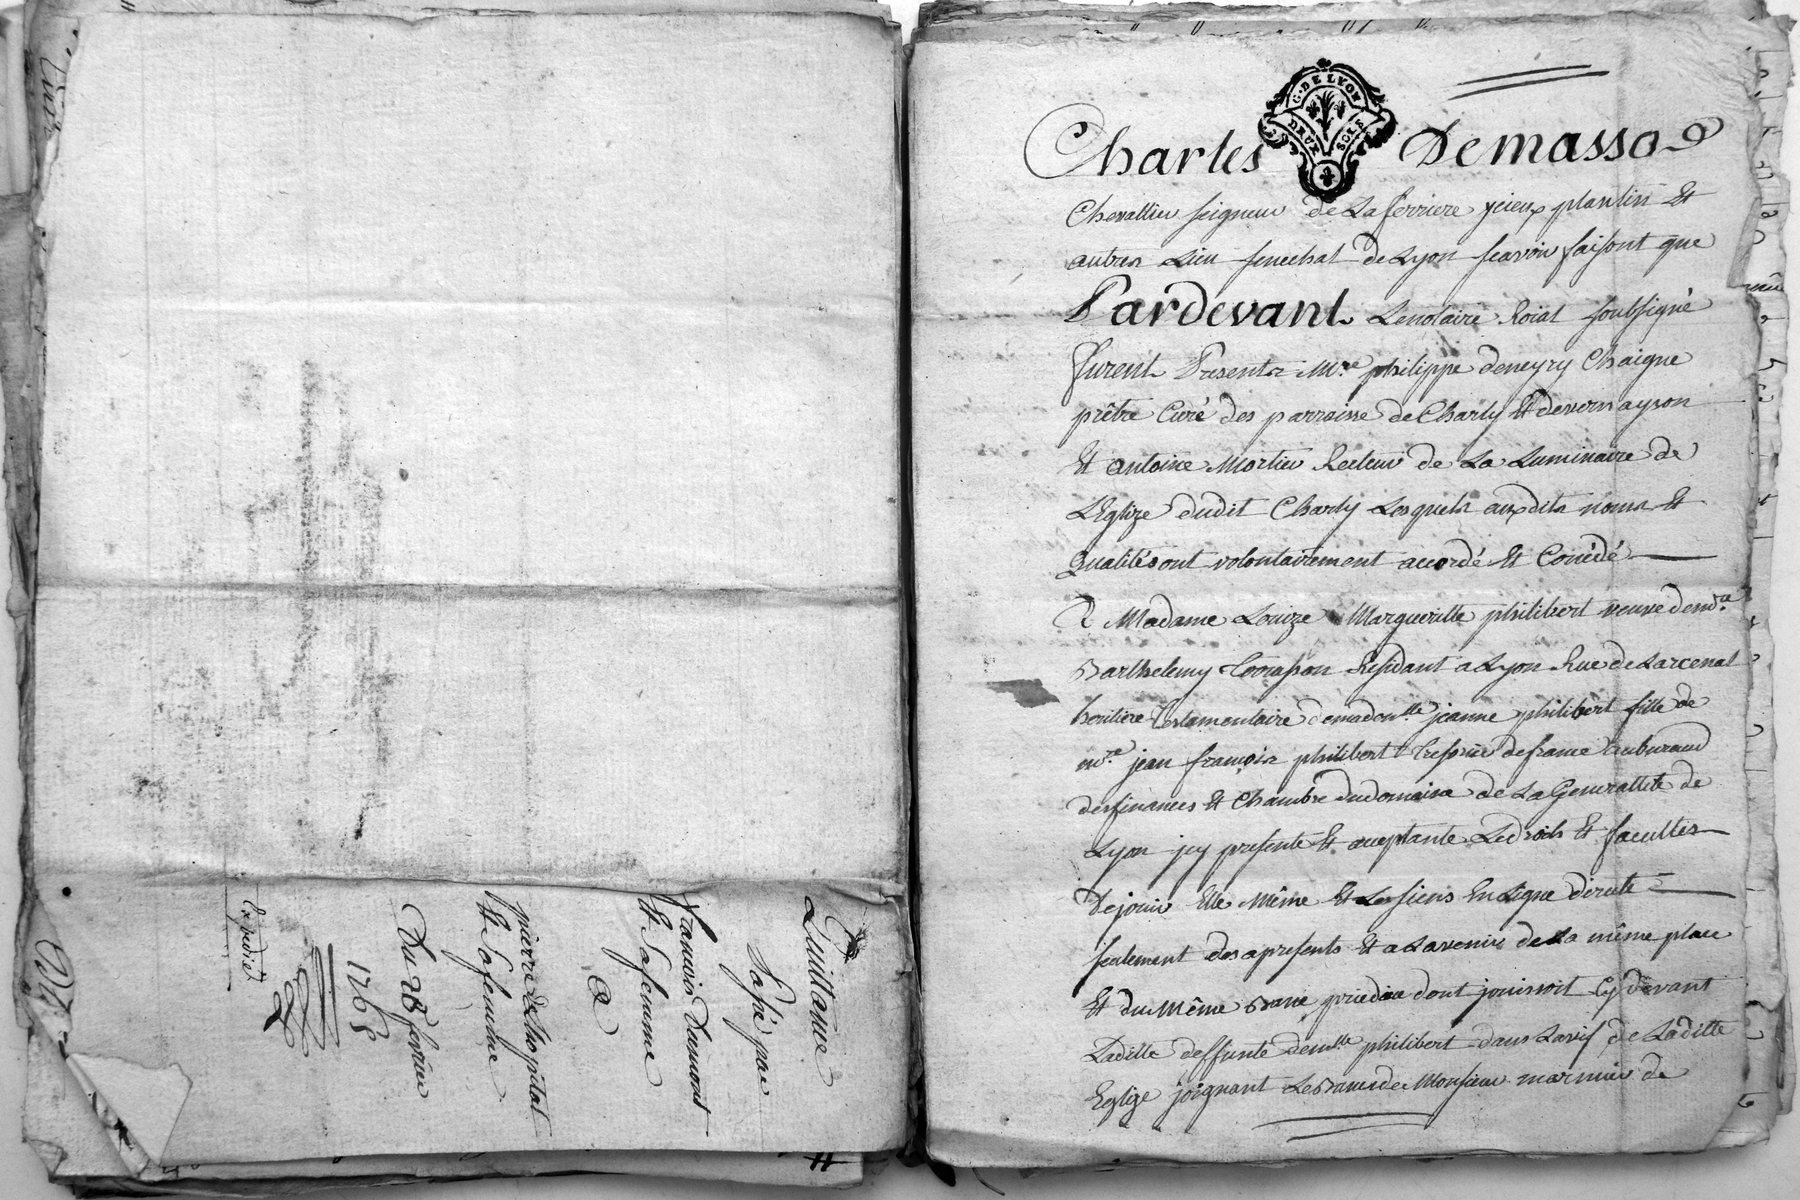 Quittance
Passé par
francois Dumont
Et Safemme
a
pierre delhospital
Et Safemme
Du 28 fevrier
1763
G. DE LYON
DEUX SOLS
Charles Demasso
Chevallier seigneur de Laferriere plantin Et
autres Lieu senechal de Lyon scavoir faisont que
Pardevant Lenotaire Roial soubsigné
furent Presents Mre philippe deneyry Chaigne
prêtre Curé des parroisse de Charly Et devernayson
Et antoine Mortier Recteur de La Luminaire de
LEglize dudit Charly Lesquels auxdits noms Et
Qualités ont volontairement accordé Et Concédé
A Madame Louize Margueritte philibert veuve demre
Barthelemy Residant a Lyon Rue de Larcenal
heritiere testamentaire demadomlle jeanne philibert fille de
mre jean françois philibert Tresorier defrance aubureaud
desfinances Et Chambre dudomaine de La Generallité de
Lyon jcy presente Et acceptante Ledroits Et facultes
Dejouir Elle Même Et Les siens En Ligne directe
seulement des apresents Et a Lavenir de La même place
Et du Même Banc dont jouissoit Cy devant
Ladille deffunte demlle philibert dans de Laditte
Eglize joignant Lebancde Monsieur marnier de